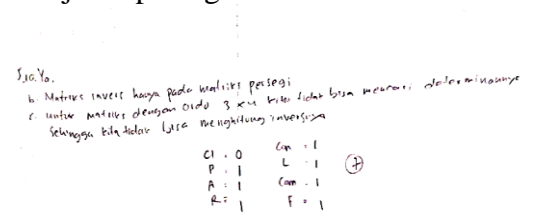 5.a. Ya.
b. Matriks invers hanya pada matriks persegi
c. untuk matriks dengan ordo 3 x 4 kita tidak bisa mencari determinannya
Sehingga kita tidak bisa menghitung inversnya
Cl : 0 Con : 1
P : 1 L : 1
A : 1 Com : 1
R : 1 F : 1
7